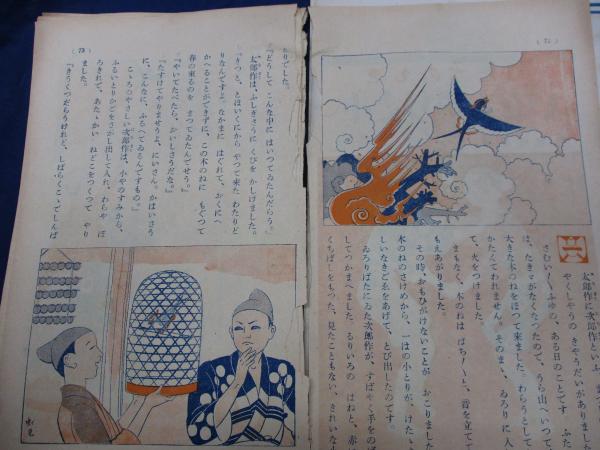 (72)
一
太郎作に次郎作といふ、まづ
やくしやうの きやうだいがありました
さむい〳〵ふゆの、ある日のことです ふた
は、たきゞがなくなつたので、うら山へいつて
大きな木のねをほつて来ました。わらうとして
かたくてわれません。そのまゝ、ゐろりに入
て、火をつけました。
まもなく、木のねは ぱち〳〵と、音を立てて
もえあがりました。
その時、おもひがけないことが おこりました
木のねのさけめから、一はの小とりが、けたゝ
しいなきごゑをあげて、とび出したのです。
ゐろりばたにゐた次郎作が、すばやく手をのば
してつかまへました。るりいろの はねと、赤い
くちばしをもつた、見たこともない、きれいな小
(73)
とりでした。
『どうして こんな中に はいつてゐたんだらう。』
太郎作は、ふしぎさうに くびを かしげました。
『きつと、とほいくにから やつて来た、わたりど
りなんですよ。なかまに はぐれて、おくにへ
かへることができずに、この木のねに もぐつて
春の来るのを まつてゐたんでせう。』
『やいてたべたら、おいしさうだな。』
『たすけてやりませうよ、にいさん。かはいさう
に、こんなに、ふるへてゐるんですもの。』
こゝろのやさしい次郎作は、小やのすみから、
ふるいとりかごをさがし出して入れ、わらや ぼ
ろきれで、あたゝかい ねどこをつくつて やり
ました。
『きうくつだらうけれど、しばらくこゝでしんば